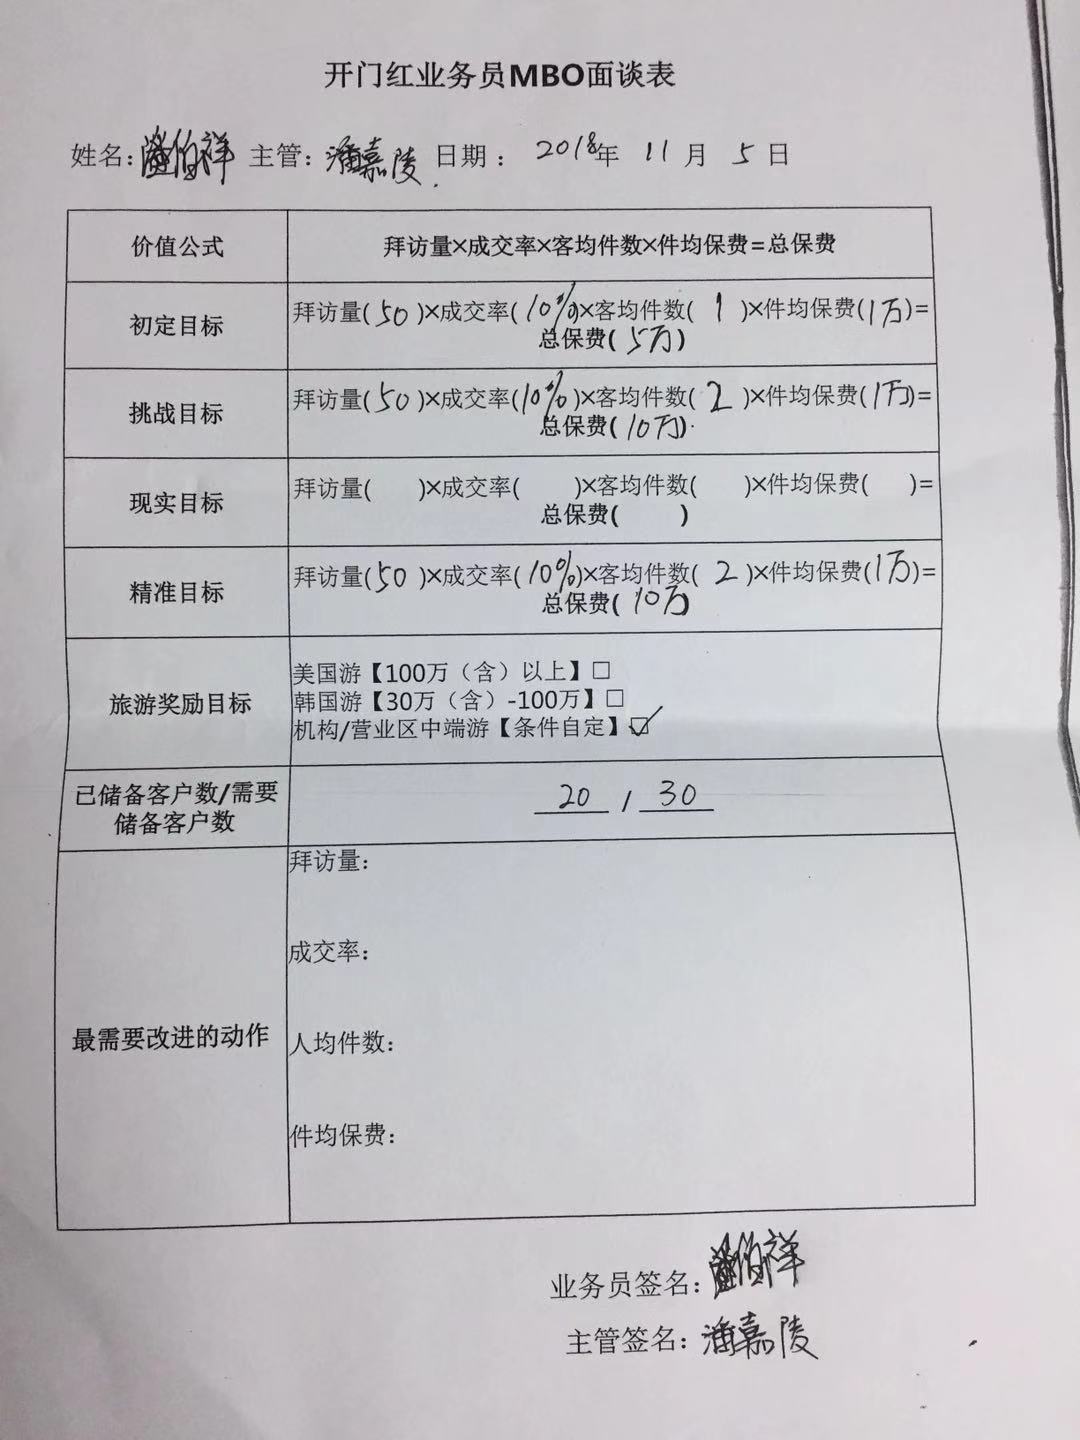 开门红业务员MBO面谈表
姓名：伯祥 主管：潘嘉陵 日期：2018年 11 月 5 日
价值公式
拜访量×成交率×客均件数×件均保费=总保费
初定目标
拜访量(50)×成交率(10%)×客均件数( 1 )×件均保费(1万)=
总保费(5万)
挑战目标
拜访量(50)×成交率(10%)×客均件数( 2 )×件均保费(1万)=
总保费(10万)
现实目标
拜访量( )×成交率( )×客均件数( )×件均保费( )=
总保费( )
精准目标
拜访量(50)×成交率(10%)×客均件数( 2 )×件均保费(1万)=
总保费(10万)
旅游奖励目标
美国游【100万（含）以上】□
韩国游【30万（含）-100万】□
机构/营业区中端游【条件自定】☑
已储备客户数/需要
储备客户数
20 / 30
最需要改进的动作
拜访量：
成交率：
人均件数：
件均保费：
业务员签名：伯祥
主管签名：潘嘉陵